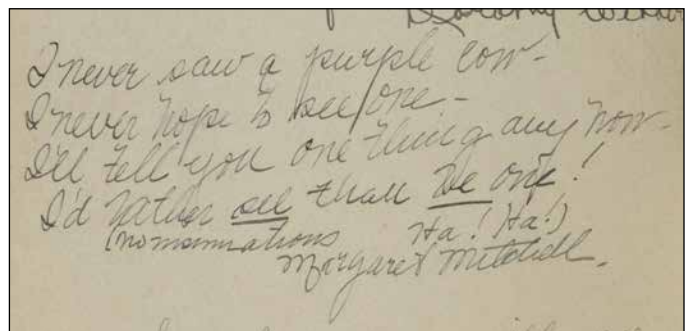 Dorothy
I never saw a purple cow-
I never hope to see one-
I'll tell you one thing any how-
I'd rather see than be one!
(no insinuations Ha! Ha!)
Margaret Mitchell.